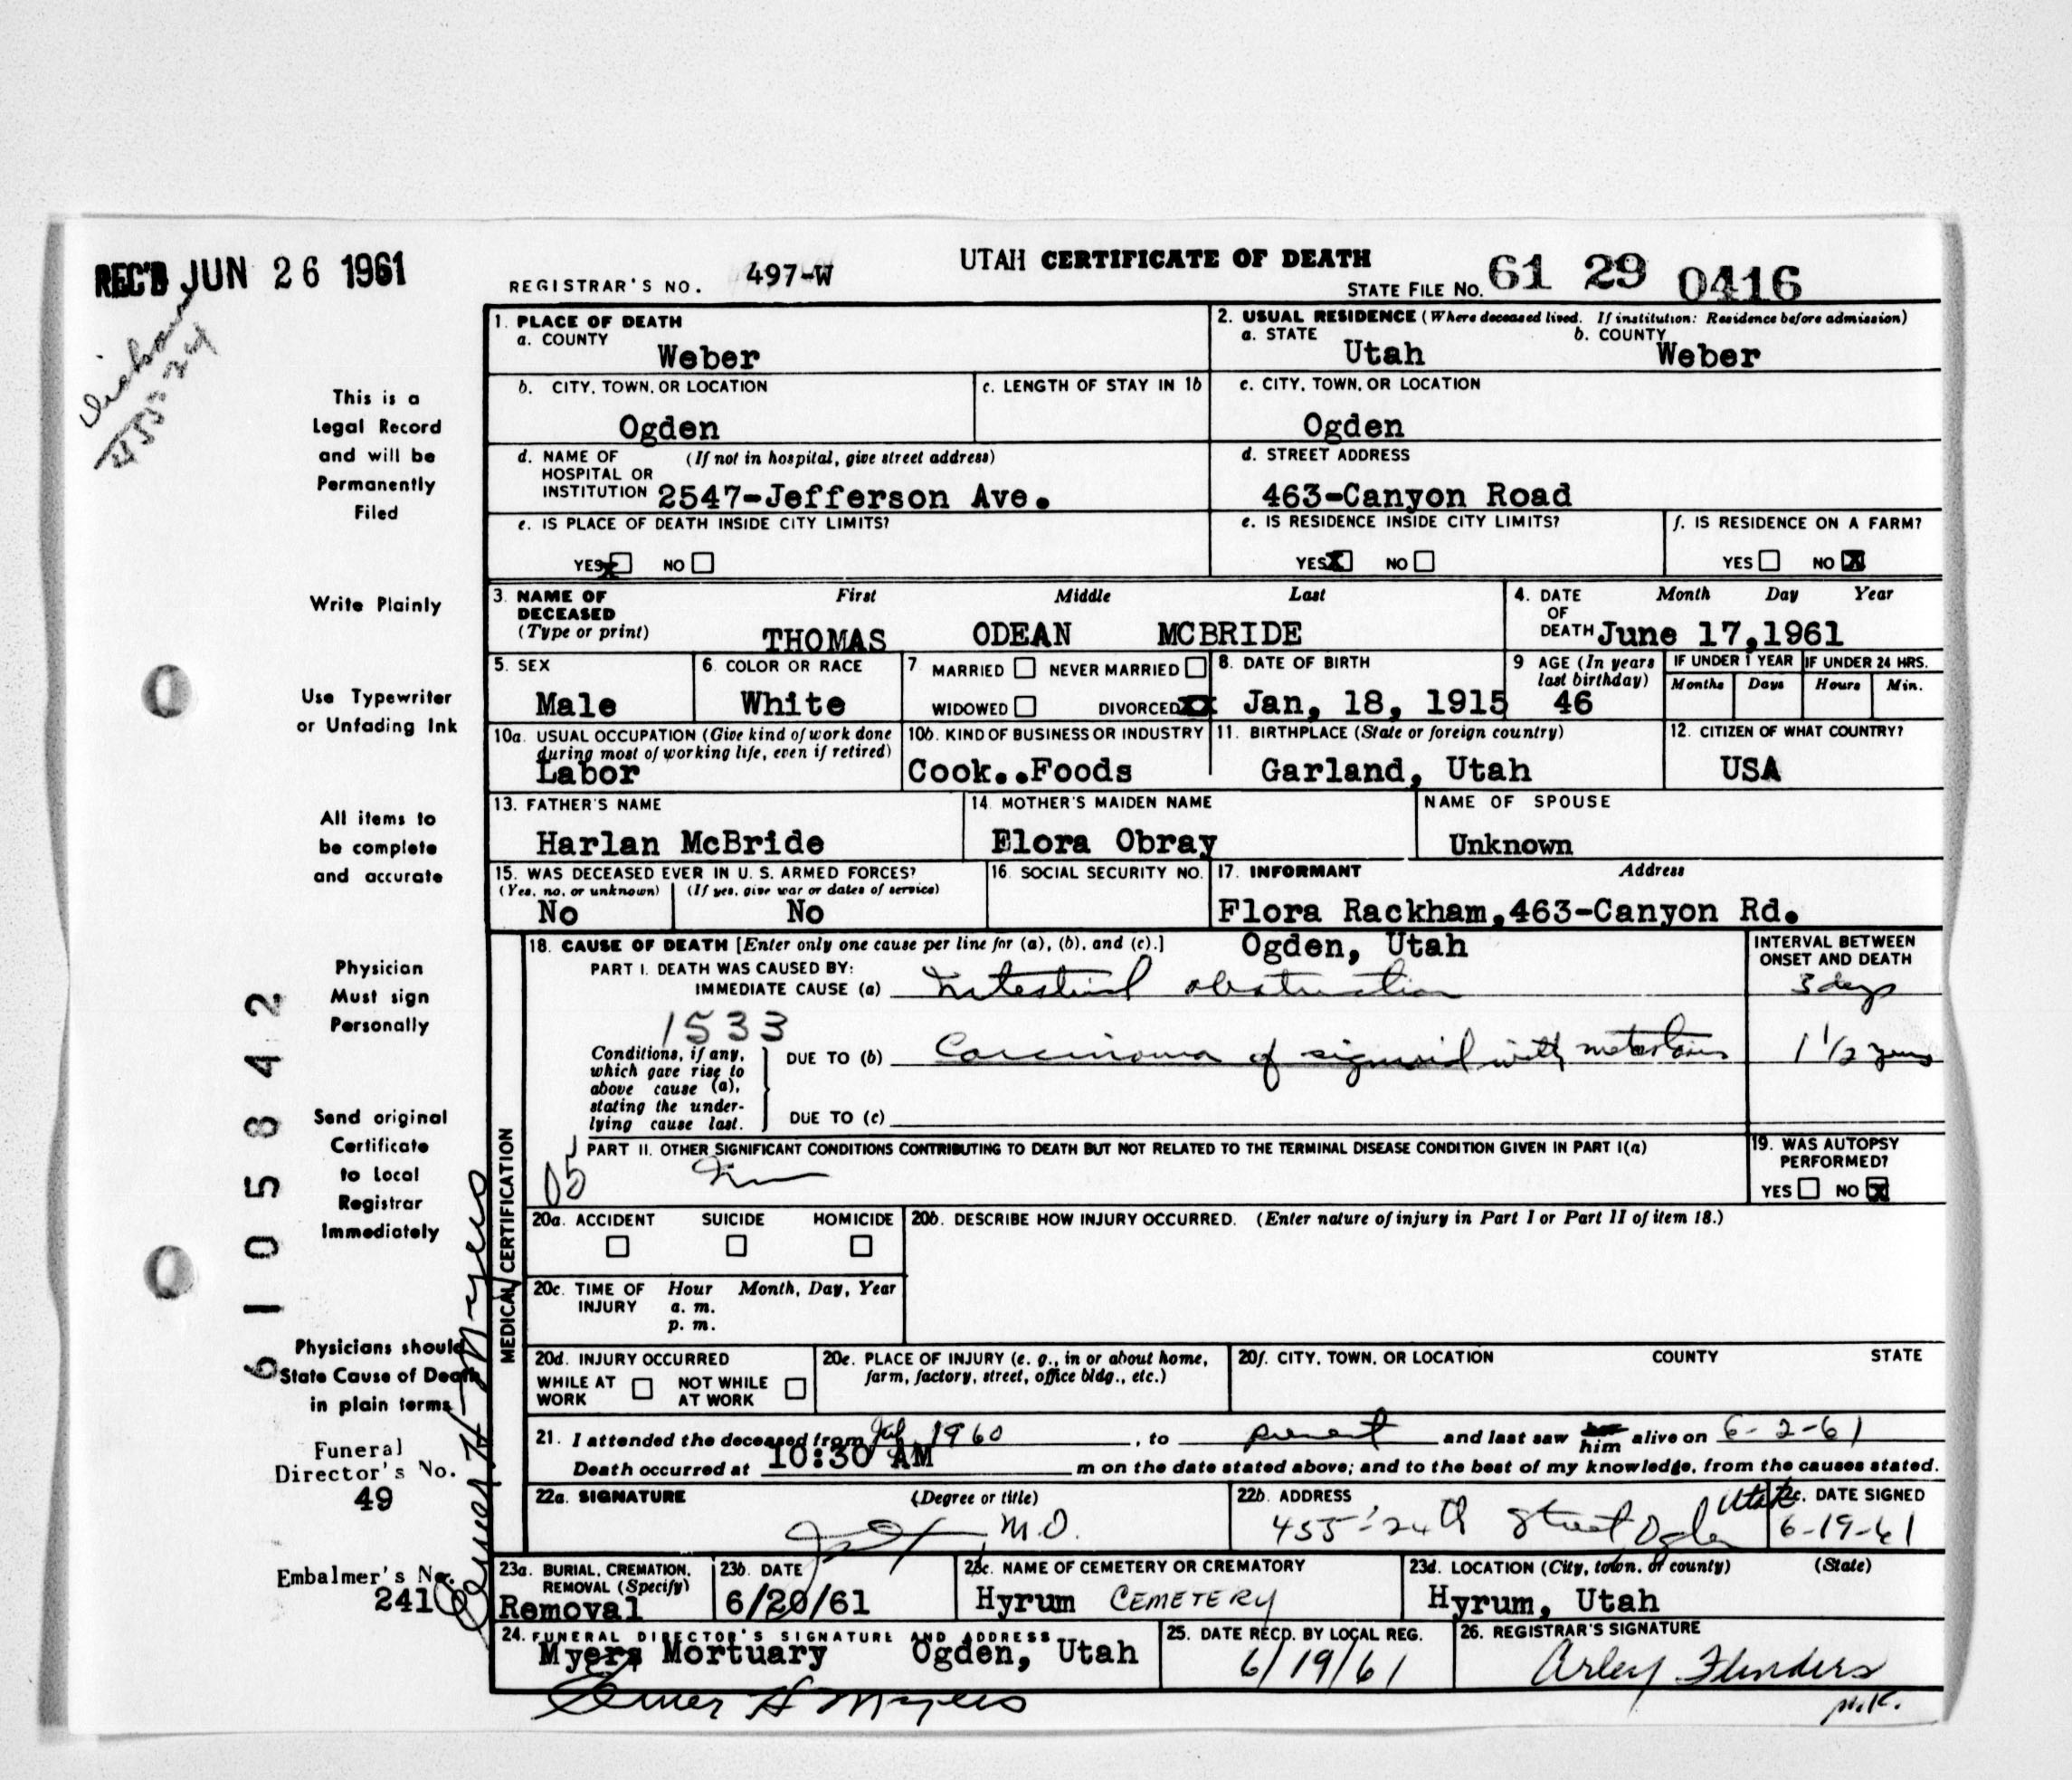 REC'D JUN 26 1961
REGISTRAR'S NO. 497-W
UTAH CERTIFICATE OF DEATH
STATE FILE NO. 61 29 0416
455-24
This is a
Legal Record
and will be
Permanently
Filed
Write Plainly
Use Typewriter
or Unfading Ink
All items to
be complete
and accurate
Physician
Must sign
Personally
Send original
Certificate
to Local
Registrar
Immediately
Physicians should
State Cause of Death
in plain terms
Funeral
Director's No.
49
Embalmer's No.
241
Elmer H Myers
6 1 0 5 8 4 2
1. PLACE OF DEATH
a. COUNTY
Weber
2. USUAL RESIDENCE (Where deceased lived. If institution: Residence before admission)
a. STATE Utah b. COUNTY Weber
b. CITY, TOWN, OR LOCATION
Ogden
c. LENGTH OF STAY IN 1b
c. CITY, TOWN, OR LOCATION
Ogden
d. NAME OF (If not in hospital, give street address)
HOSPITAL OR
INSTITUTION 2547-Jefferson Ave.
d. STREET ADDRESS
463-Canyon Road
e. IS PLACE OF DEATH INSIDE CITY LIMITS?
YES X NO
e. IS RESIDENCE INSIDE CITY LIMITS?
YES X NO
f. IS RESIDENCE ON A FARM?
YES NO X
3. NAME OF DECEASED First Middle Last
(Type or print)
THOMAS ODEAN MCBRIDE
4. DATE OF DEATH Month Day Year
June 17,1961
5. SEX
Male
6. COLOR OR RACE
White
7. MARRIED NEVER MARRIED
WIDOWED DIVORCED X
8. DATE OF BIRTH
Jan, 18, 1915
9 AGE (In years last birthday)
46
IF UNDER 1 YEAR IF UNDER 24 HRS.
Months Days Hours Min.
10a. USUAL OCCUPATION (Give kind of work done during most of working life, even if retired)
Labor
10b. KIND OF BUSINESS OR INDUSTRY
Cook..Foods
11. BIRTHPLACE (State or foreign country)
Garland, Utah
12. CITIZEN OF WHAT COUNTRY?
USA
13. FATHER'S NAME
Harlan McBride
14. MOTHER'S MAIDEN NAME
Elora Obray
NAME OF SPOUSE
Unknown
15. WAS DECEASED EVER IN U. S. ARMED FORCES?
(Yes, no, or unknown) (If yes, give war or dates of service)
No No
16. SOCIAL SECURITY NO.
17. INFORMANT Address
Flora Rackham,463-Canyon Rd.
Ogden, Utah
MEDICAL CERTIFICATION
18. CAUSE OF DEATH [Enter only one cause per line for (a), (b), and (c).]
INTERVAL BETWEEN
ONSET AND DEATH
PART I. DEATH WAS CAUSED BY:
IMMEDIATE CAUSE (a) Intestinal obstruction 3 days
1533
Conditions, if any,
which gave rise to
above cause (a),
stating the under-
lying cause last.
DUE TO (b) Carcinoma of sigmoid with metastasis 1 1/2 years
DUE TO (c)
05
PART II. OTHER SIGNIFICANT CONDITIONS CONTRIBUTING TO DEATH BUT NOT RELATED TO THE TERMINAL DISEASE CONDITION GIVEN IN PART I(a)
19. WAS AUTOPSY
PERFORMED?
YES NO X
20a. ACCIDENT SUICIDE HOMICIDE
20b. DESCRIBE HOW INJURY OCCURRED. (Enter nature of injury in Part I or Part II of item 18.)
20c. TIME OF INJURY Hour Month, Day, Year
a. m.
p. m.
20d. INJURY OCCURRED
WHILE AT WORK NOT WHILE AT WORK
20e. PLACE OF INJURY (e. g., in or about home,
farm, factory, street, office bldg., etc.)
20f. CITY, TOWN, OR LOCATION COUNTY STATE
21. I attended the deceased from 1960, to present and last saw her him alive on 6-2-61
Death occurred at 10:30 AM m on the date stated above; and to the best of my knowledge, from the causes stated.
22a. SIGNATURE (Degree or title)
M.D.
22b. ADDRESS
455-24th Street Ogden Utah
22c. DATE SIGNED
6-19-61
23a. BURIAL, CREMATION,
REMOVAL (Specify)
Removal
23b. DATE
6/20/61
23c. NAME OF CEMETERY OR CREMATORY
Hyrum CEMETERY
23d. LOCATION (City, town, or county) (State)
Hyrum, Utah
24. FUNERAL DIRECTOR'S SIGNATURE AND ADDRESS
Myers Mortuary Ogden, Utah
Elmer H Myers
25. DATE RECD. BY LOCAL REG.
6/19/61
26. REGISTRAR'S SIGNATURE
Arley Flinders
M.K.